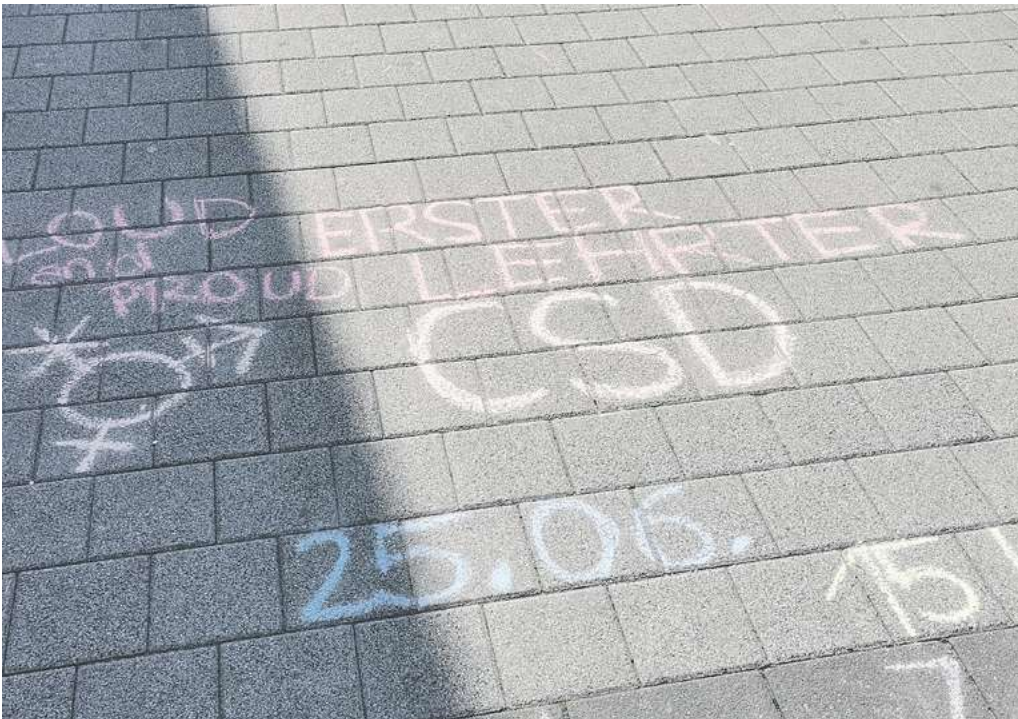 LOUD
and
PROUD
ERSTER
LEHRTER
CSD
25.06.
15